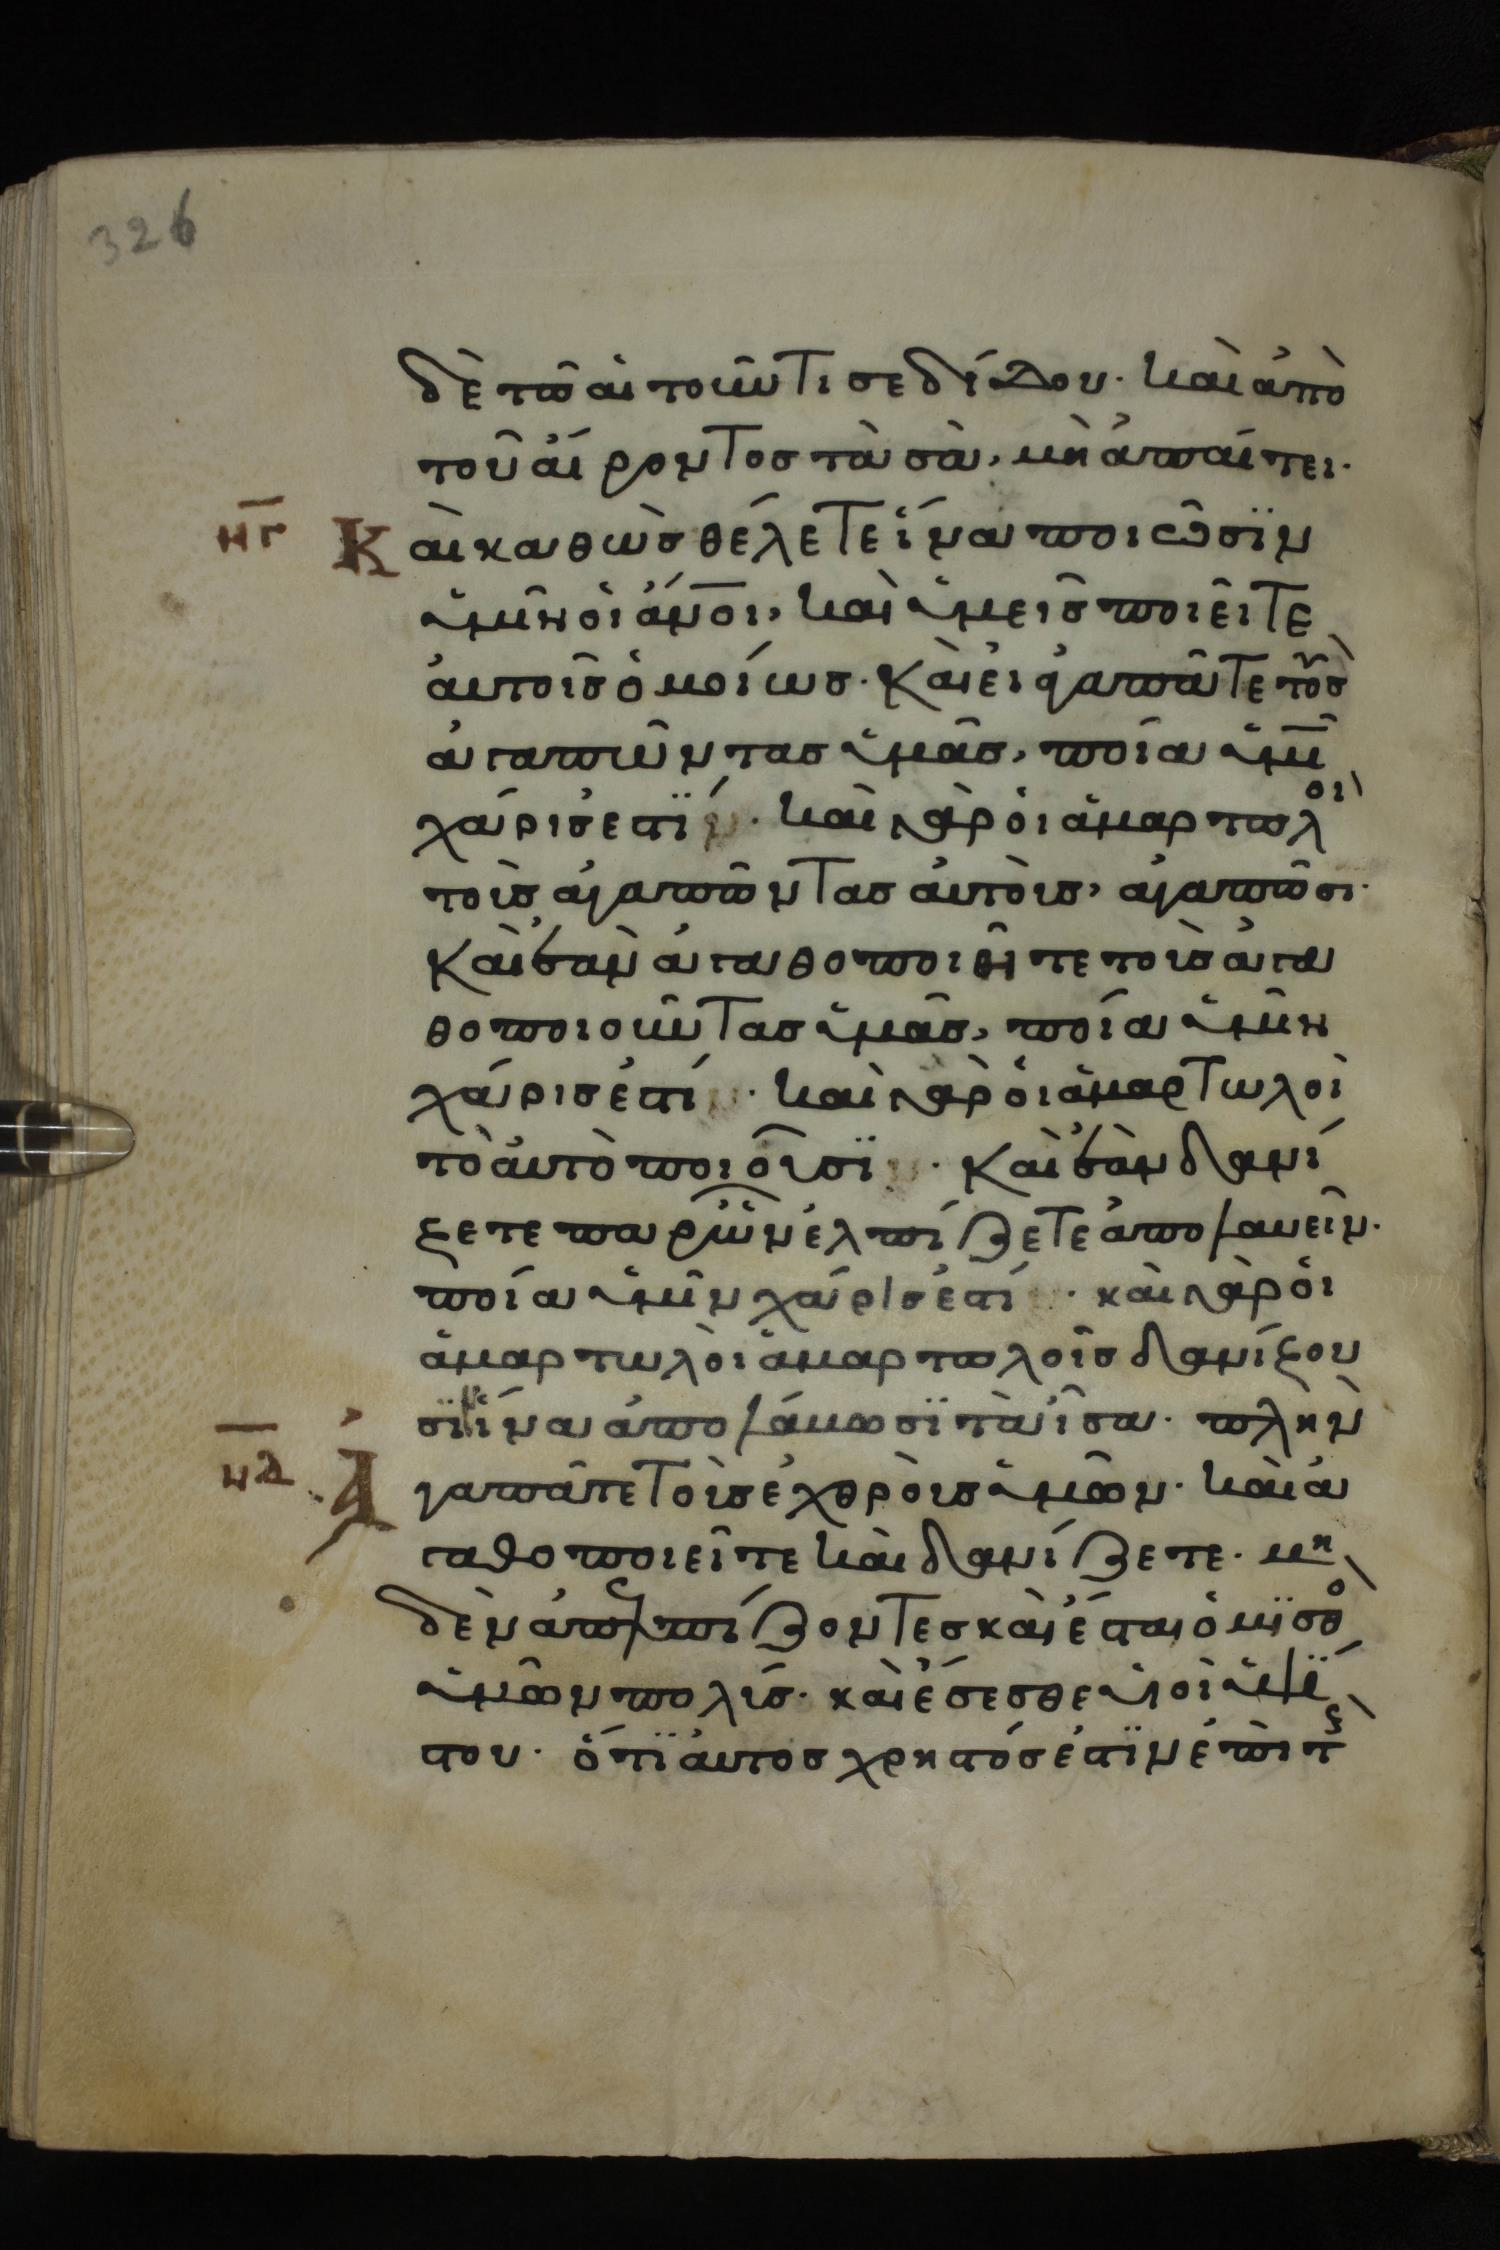 326
δὲ τῶ αἰτοῦντι σε δίδου· καὶ ἀπὸ
τοῦ αἴροντος τὰ σὰ, μὴ ἀπαίτει·
νγ Καὶ καθὼς θέλετε ἵνα ποιῶσϊν
ὑμῖν οἱ ἄνοι, καὶ ὑμεῖς ποιεῖτε
ἀυτοῖς ὁμοίως· Καὶ εἰ ἀγαπᾶτε τοὺς
ἀγαπῶντας ὑμᾶς, ποία ὑμῖ
χάρις ἐστϊν· καὶ γὰρ οἱ ἁμαρτωλοὶ
τοὺς ἀγαπῶντας ἀυτοὺς, ἀγαπῶσι·
Καὶ ἐὰν ἀγαθοποιῆτε τοὺς ἀγα
θοποιοῦντας ὑμᾶς, ποία ὑμῖν
χάρις ἐστί· καὶ γὰρ οἱ ἁμαρτωλοὶ
τὸ ἀυτὸ ποιοῦσϊ· Καὶ ἐὰν δανί
ζετε παρ ὧν ἐλπίζετε ἀπολαυεῖν·
ποία ὑμῖν χάρις ἐστί· καὶ γὰρ οἱ
ἁμαρτωλοὶ ἁμαρτωλοῖς δανίζου
σϊ ἵνα ἀπολάυωσϊ τὰ ἶσα· πλὴν
νδ Ἀγαπᾶτε τοὺς ἐχθροὺς ὑμῶν· καὶ ἀ
γαθοποιεῖτε καὶ δανίζετε· μη
δὲν ἀπελπίζοντες καὶ ἔσται ὁ μϊσθὸ
ὑμῶν πολύς· καὶ ἔσεσθε ὑιοὶ ὑψΐ
στου· ὅτϊ ἀυτος χρηστός ἐστϊν ἐπὶ τ